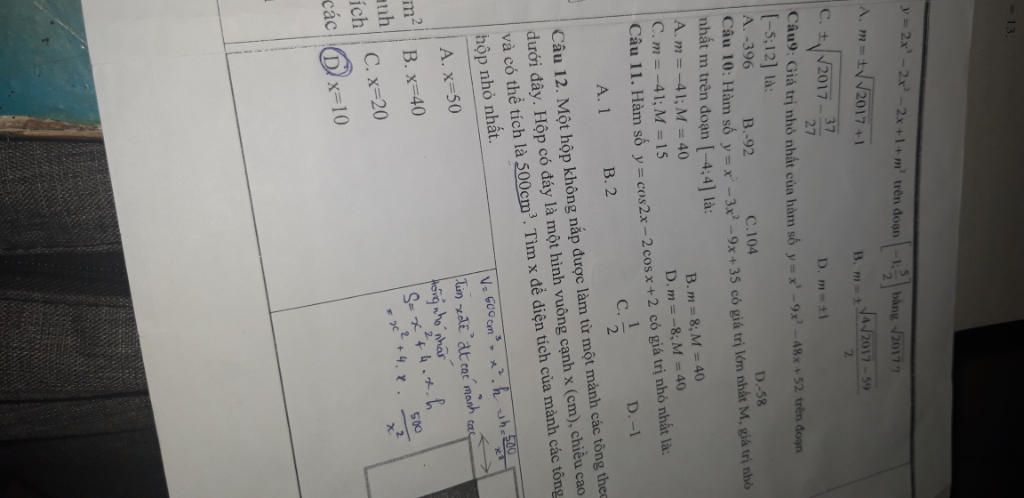 = 13.
y = 2x³ − 2x² − 2x + 1 + m² trên đoạn [−1; 5/2] bằng √2017?
A. m = ±√(√2017 + 1)
B. m = ±√(4√2017 − 59)/2
C. ±√(√2017 − 37/27)
D. m = ±1
Câu9: Giá trị nhỏ nhất của hàm số y = x³ − 9x² − 48x + 52 trên đoạn
[−5;12] là:
A. -396 B.-92 C.104 D.-58
Câu 10: Hàm số y = x³ − 3x² − 9x + 35 có giá trị lớn nhất M, giá trị nhỏ
nhất m trên đoạn [−4;4] là:
A. m = −41; M = 40
B. m = 8; M = 40
C. m = −41; M = 15
D. m = −8; M = 40
Câu 11. Hàm số y = cos2x − 2cos x + 2 có giá trị nhỏ nhất là:
A. 1 B. 2 C. 1/2 D. −1
Câu 12. Một hộp không nắp được làm từ một mảnh các tông theo
dưới đây. Hộp có đáy là một hình vuông cạnh x (cm), chiều cao
và có thể tích là 500cm³. Tìm x để diện tích của mảnh các tông
hộp nhỏ nhất.
A. x=50
B. x=40
C. x=20
D. x=10
V = 500cm³ = x². h → h = 500/x²
Tìm x để dt các mảnh các
tông nhỏ nhất
S = x² + 4. x. h
= x² + 4. x. 500/x²
m²
ình
tích
các